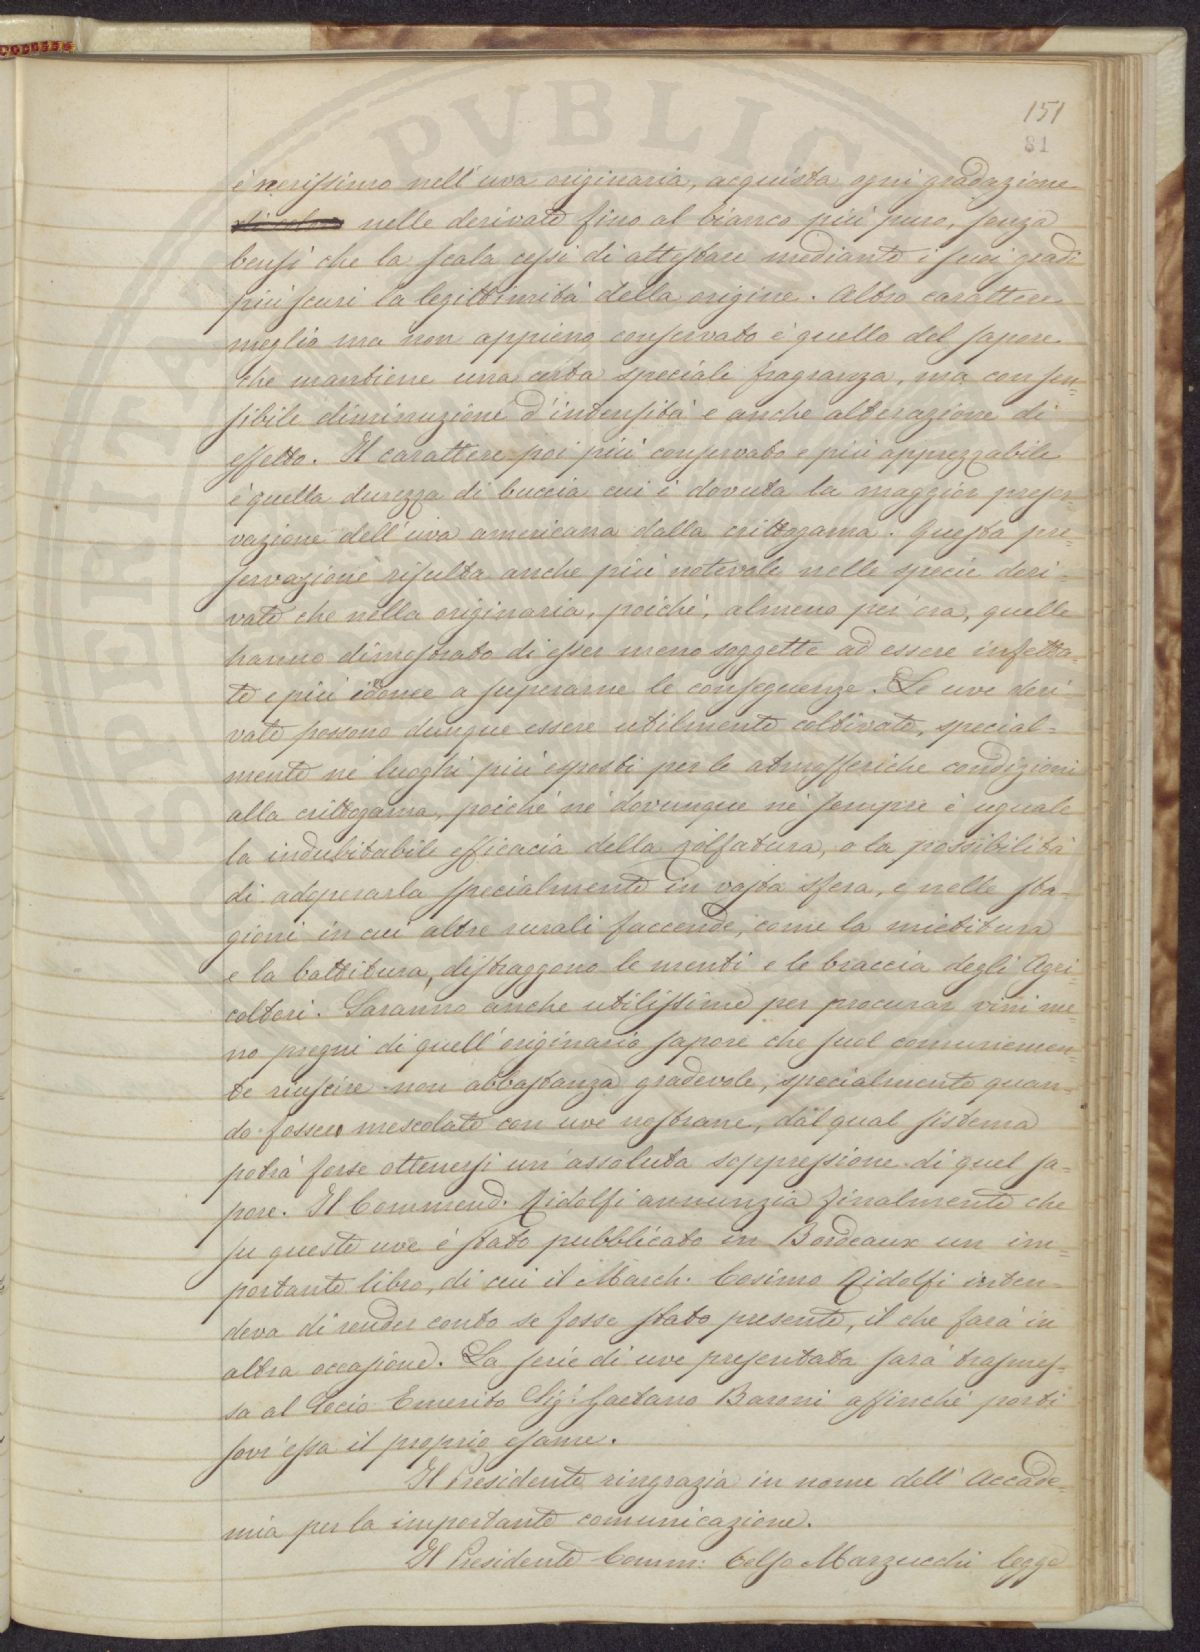 151
81
è nerissimo nell'uva originaria, acquista ogni gradazione
di colore nelle derivate fino al bianco più puro, senza
bensì che la scala cessi di attestare mediante i suoi gradi
più scuri la legittimità della origine. Altro carattere
meglio ma non appieno conservato è quello del sapore
che mantiene una certa speciale fragranza, ma con sen=
sibile diminuzione d'intensità e anche alterazione di
effetto. Il carattere poi più conservato e più apprezzabile
è quella durezza di buccia cui è dovuta la maggior preser=
vazione dell'uva americana dalla crittogama. Questa pre=
servazione risulta anche più notevole nelle specie deri=
vate che nella originaria, poichè, almeno per ora, quelle
hanno dimostrato di esser meno soggette ad essere infetta=
te e più idonee a superarne le conseguenze. Le uve deri=
vate possono dunque essere utilmente coltivate, special=
mente ne' luoghi più esposti per le atmosferiche condizioni
alla crittogama, poichè nè dovunque nè sempre è uguale
la indubitabile efficacia della zolfatura, o la possibilità
di adoperarla specialmente in vasta sfera, e nelle sta=
gioni in cui altre rurali faccende, come la mietitura
e la battitura, distraggono le menti e le braccia degli Agri=
coltori. Saranno anche utilissime per procurar vini me=
no pregni di quell'originario sapore che suol comunemen=
te riuscire non abbastanza gradevole, specialmente quan=
do fosser mescolate con uve nostrane, dal qual sistema
potrà forse ottenersi un'assoluta soppressione di quel sa=
pore. Il Commend. Ridolfi annunzia finalmente che
su queste uve è stato pubblicato in Bordeaux un im=
portante libro, di cui il March. Cosimo Ridolfi inten=
deva di render conto se fosse stato presente, il che farà in
altra occasione. La serie di uve presentata sarà trasmes=
sa al Socio Emerito Sig.r Gaetano Baroni affinchè porti
sovr'essa il proprio esame.
Il Presidente ringrazia in nome dell'Accade=
mia per la importante comunicazione.
Il Presidente Comm: Celso Marzucchi legge